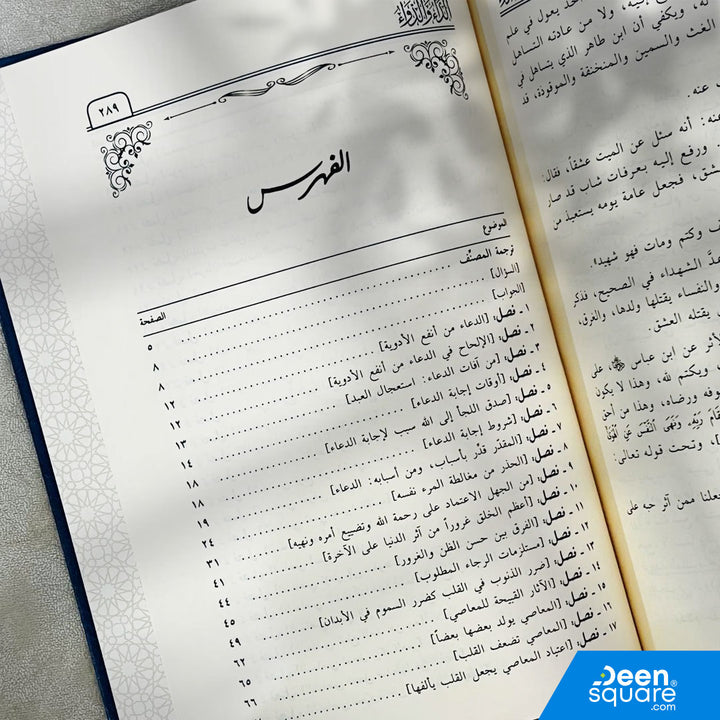 الدَّاءُ وَالدَّوَاءُ
٢٨٩
الفهرس
الموضوع الصفحة
ترجمة المصنّف ٥
[السؤال] ٨
[الجواب] ٨
١ ـ فصل: [الدعاء من أنفع الأدوية] ١٢
٢ ـ فصل: [الإلحاح في الدعاء من أنفع الأدوية] ١٢
٣ ـ فصل: [من آفات الدعاء: استعجال العبد] ١٣
٤ ـ فصل: [أوقات إجابة الدعاء] ١٤
٥ ـ فصل: [صدق اللجأ إلى الله سبب لإجابة الدعاء] ١٨
٦ ـ فصل: [شروط إجابة الدعاء] ١٨
٧ ـ فصل: [المقدّر قدّر بأسباب، ومن أسبابه: الدعاء] ١٩
٨ ـ فصل: [الحذر من مغالطة المرء نفسه] ٢٤
٩ ـ فصل: [من الجهل الاعتماد على رحمة الله وتضييع أمره ونهيه] ٣١
١٠ ـ فصل: [أعظم الخلق غروراً من آثر الدنيا على الآخرة] ٤١
١١ ـ فصل: [الفرق بين حسن الظن والغرور] ٤٤
١٢ ـ فصل: [مستلزمات الرجاء المطلوب] ٤٥
١٣ ـ فصل: [ضرر الذنوب في القلب كضرر السموم في الأبدان] ٤٩
١٤ ـ فصل: [الآثار القبيحة للمعاصي] ٦٢
١٥ ـ فصل: [المعاصي يولد بعضها بعضاً] ٦٥
١٦ ـ فصل: [المعاصي تضعف القلب] ٦٦
١٧ ـ فصل: [اعتياد المعاصي يجعل القلب يألفها]
له، ويكفي أن ابن طاهر الذي يتساهل في
الغث والسمين والمنخنقة والموقوذة، قد
عنه.
عنه: أنه سئل عن الميت عشقاً، فقال:
ورفع إليه بعرفات شاب قد صار
عشق، فجعل عامة يومه يستعيذ من
وكتم ومات فهو شهيد».
عدَّ الشهداء في الصحيح، فذكر
والنفساء يقتلها ولدها، والغرق،
يقتله العشق.
الأثر عن ابن عباس ﷺ، على
ويكتم لله، وهذا لا يكون
خوفه ورضاه، وهذا من أحق
مَقَامَ رَبِّهِ وَنَهَى النَّفْسَ عَنِ الْهَوَى
، وتحت قوله تعالى:
يجعلنا ممن آثر حبه على
Deen
square
.com